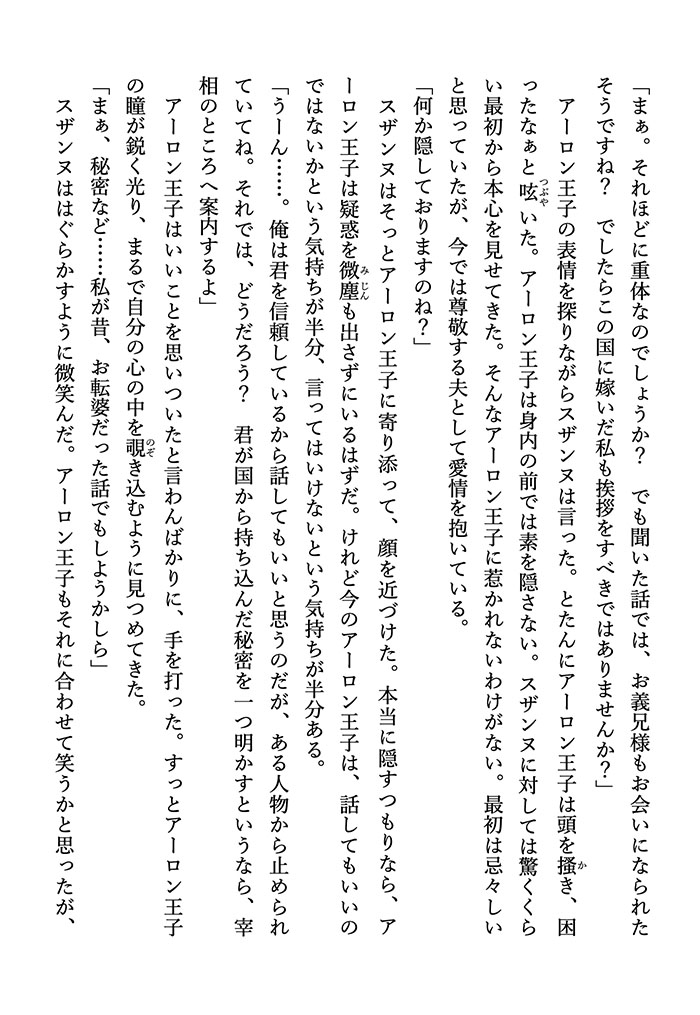 「まぁ。それほどに重体なのでしょうか？　でも聞いた話では、お義兄様もお会いになられた
そうですね？　でしたらこの国に嫁いだ私も挨拶をすべきではありませんか？」
　アーロン王子の表情を探りながらスザンヌは言った。とたんにアーロン王子は頭を掻き、困
ったなぁと呟いた。アーロン王子は身内の前では素を隠さない。スザンヌに対しては驚くくら
い最初から本心を見せてきた。そんなアーロン王子に惹かれないわけがない。最初は忌々しい
と思っていたが、今では尊敬する夫として愛情を抱いている。
「何か隠しておりますのね？」
　スザンヌはそっとアーロン王子に寄り添って、顔を近づけた。本当に隠すつもりなら、ア
ーロン王子は疑惑を微塵も出さずにいるはずだ。けれど今のアーロン王子は、話してもいいの
ではないかという気持ちが半分、言ってはいけないという気持ちが半分ある。
「うーん……。俺は君を信頼しているから話してもいいと思うのだが、ある人物から止められ
ていてね。それでは、どうだろう？　君が国から持ち込んだ秘密を一つ明かすというなら、宰
相のところへ案内するよ」
　アーロン王子はいいことを思いついたと言わんばかりに、手を打った。すっとアーロン王子
の瞳が鋭く光り、まるで自分の心の中を覗き込むように見つめてきた。
「まぁ、秘密など……私が昔、お転婆だった話でもしようかしら」
　スザンヌははぐらかすように微笑んだ。アーロン王子もそれに合わせて笑うかと思ったが、